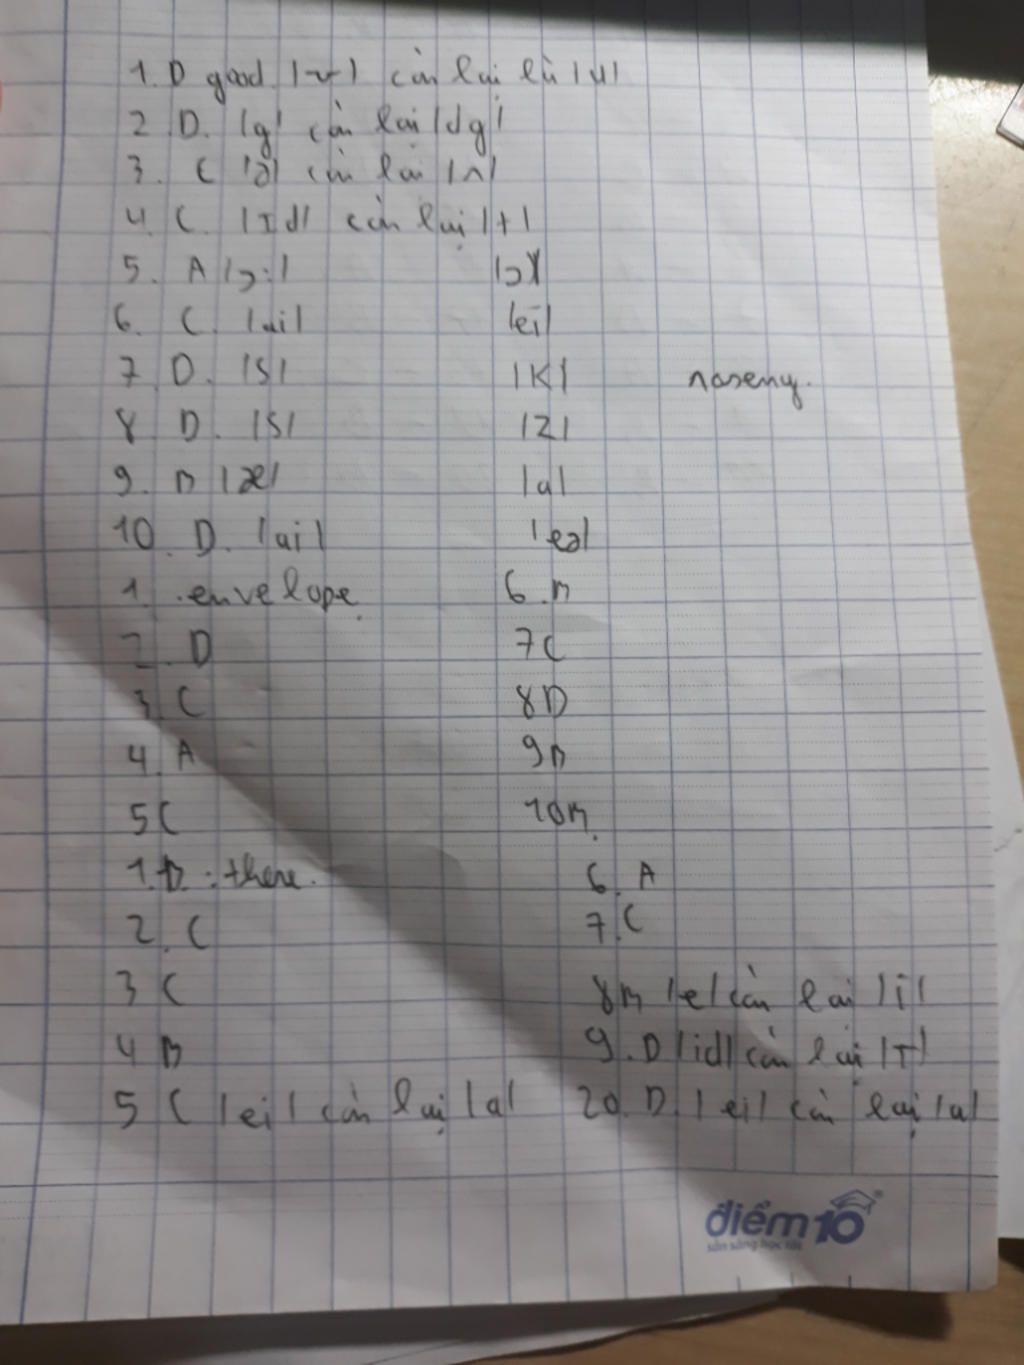 1. D good /ʊ/ còn lại là /u/
2 D. /g/ còn lại /dg/
3. C /ə/ còn lại /ʌ/
4. C. /Id/ còn lại /t/
5. A /ɔ:/ /ɔ/
6. C. /ai/ /ei/
7 D. /S/ /K/ noseny.
8 D. /S/ /Z/
9. B /æ/ /a/
10. D. /ai/ /eə/
1. envelope. 6. B
2. D 7C
3 C 8D
4. A 9B
5C 10B.
1. D: there. 6. A
2. C 7. C
3 C 8B /e/ còn lại /i/
4 B 9. D /id/ còn lại /T/
5 C /ei/ còn lại /a/ 20. D. /ei/ còn lại /a/
điểm10
sẵn sàng học tốt